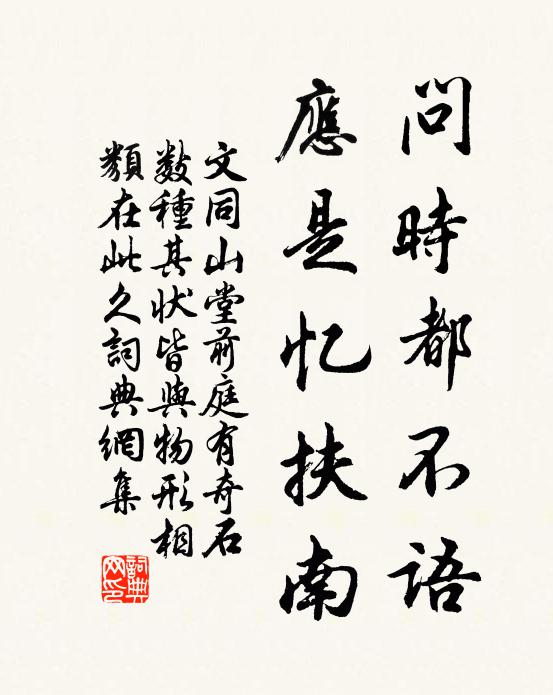 問時都不語
應是忆扶南
文同山堂前庭有奇石
数種其状皆與物形相
類在此久詞典網集
詞典
网印